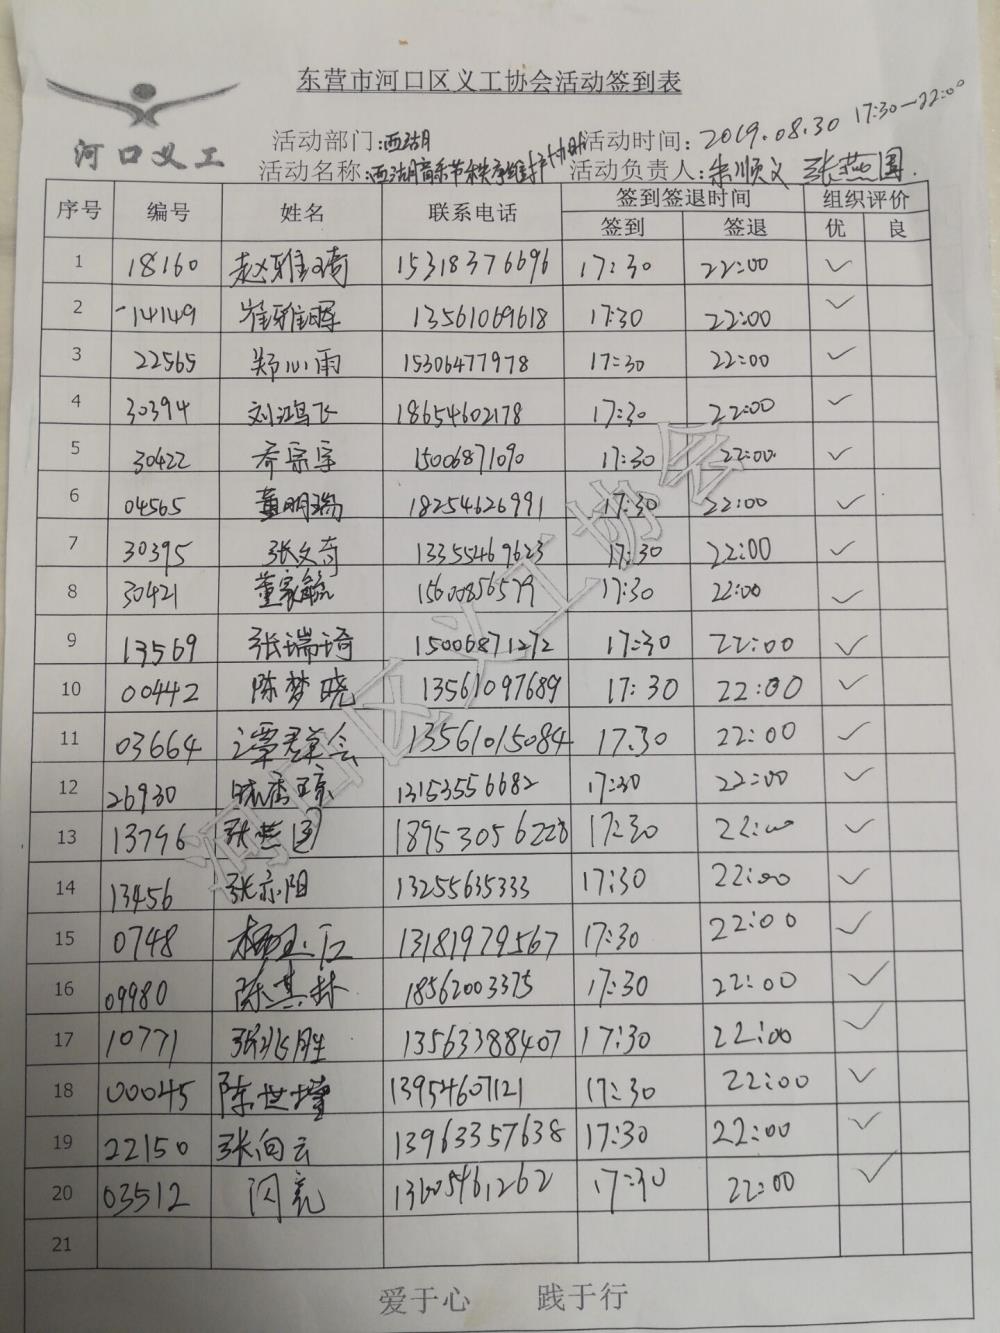 东营市河口区义工协会活动签到表
河口义工
活动部门:西湖 活动时间: 2019.08.30 17:30—22:00
活动名称:西湖音乐节秩序维护 活动负责人: 张燕
序号 编号 姓名 联系电话 签到签退时间 组织评价
签到 签退 优 良
1 18160 赵雅琦 15318376696 17:30 22:00 ✓
2 14149 崔雅晖 13561069618 17:30 22:00 ✓
3 22565 郑心雨 15306477978 17:30 22:00 ✓
4 30394 刘鸿飞 18654602178 17:30 22:00 ✓
5 30422 乔宗宇 15006871090 17:30 22:00 ✓
6 04565 董明瑞 18254626991 17:30 22:00 ✓
7 30395 张文奇 13355469623 17:30 22:00 ✓
8 30421 董家毓 15600856579 17:30 22:00 ✓
9 13569 张瑞琦 15006871272 17:30 22:00 ✓
10 00442 陈梦晓 13561097689 17:30 22:00 ✓
11 03664 13561015084 17:30 22:00 ✓
12 26930 13153556682 17:30 22:00 ✓
13 13796 张燕 18953056228 17:30 22:00 ✓
14 13456 张亦阳 13255635333 17:30 22:00 ✓
15 0748 13181979567 17:30 22:00 ✓
16 09980 陈其林 18562003375 17:30 22:00 ✓
17 10771 张兆胜 13563388407 17:30 22:00 ✓
18 00045 陈世 13954607121 17:30 22:00 ✓
19 22150 张向云 13963357638 17:30 22:00 ✓
20 03512 闪亮 13605461262 17:30 22:00 ✓
21
河口区义工协会
爱于心 践于行